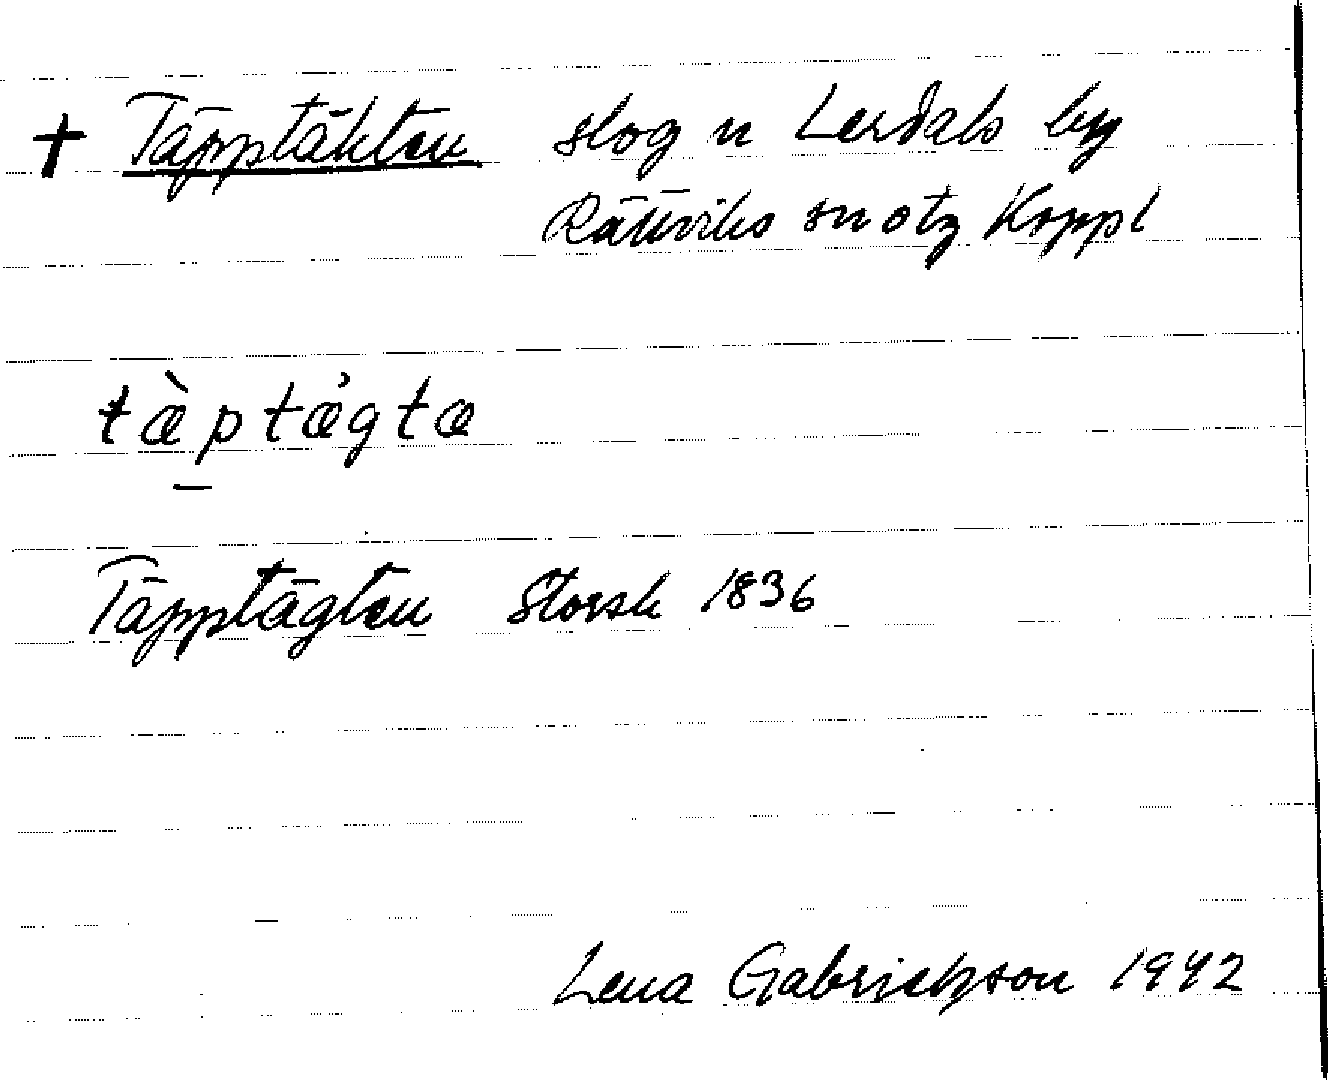 † Täpptäkten slog n Lerdals by
Rättviks sn otg Koppl
tæ̀ptægtæ
Täpptägten Storsk 1836
Lena Gabrielsson 1942